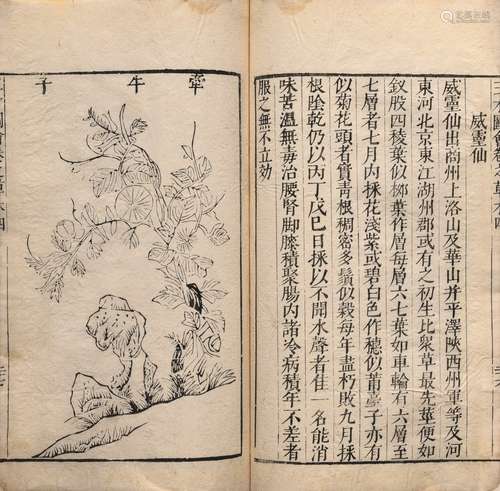 威靈仙
威靈仙出商州上洛山及華山并平澤陝西州軍等及河
東河北京東江湖州郡或有之初生比衆草最先莖便如
釵股四稜葉似柳葉作層每層六七葉如車輪有六層至
七層者七月內採花淺紫或碧白色作穗似莆臺子亦有
似菊花頭者實青根稠密多鬚似穀每年盡朽敗九月採
根陰乾仍以丙丁戊巳日採以不聞水聲者佳一名能消
味苦溫無毒治腰腎脚膝積聚腸內諸冷病積年不差者
服之無不立効
牽牛子